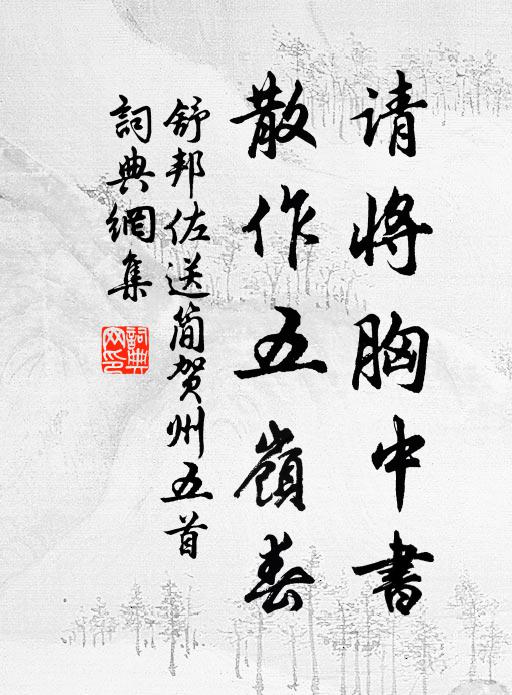 请将胸中書
散作五嶺春
舒邦佐送简贺州五首
詞典網集
詞典網印